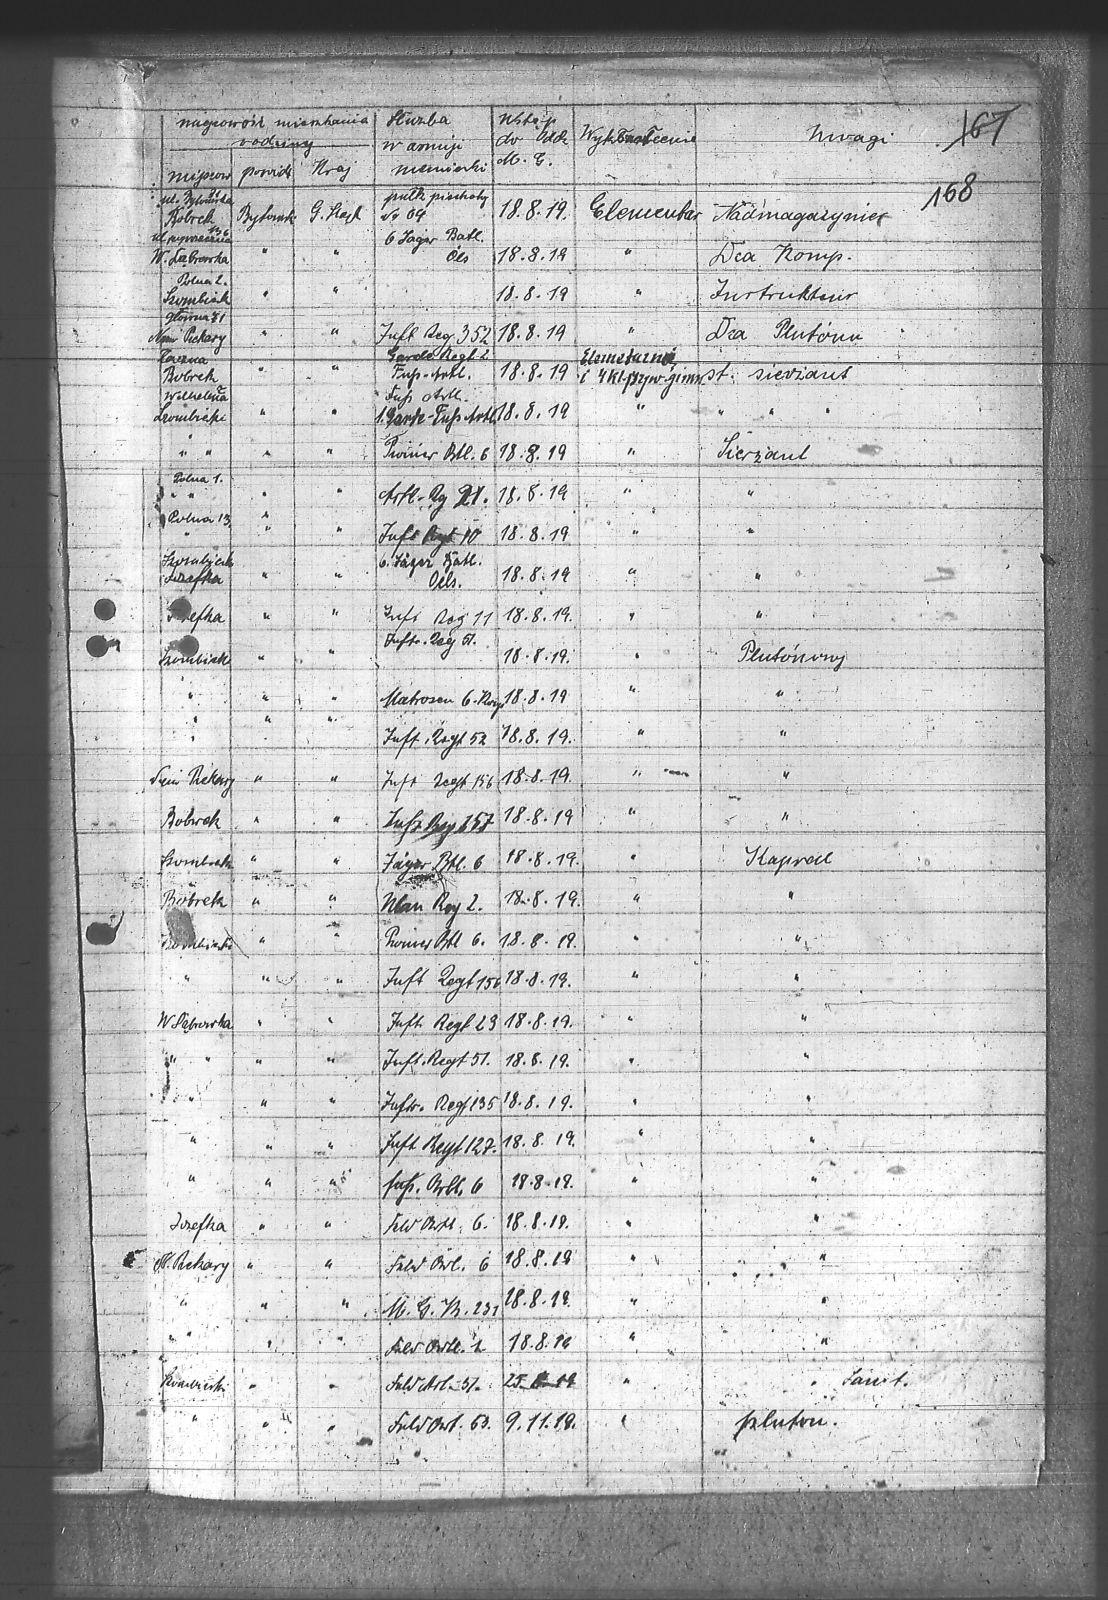 miejscowość mieszkania rodziny | Służba w armji niemiecki | Wstęp do Odd. M. G. | Wykształcenie | Uwagi 167
miejscow. | powiat | Kraj
168
Bobrek | Bytomsk | G. Śląsk | pułk piechoty No 04 | 18.8.19. | Elementar | Nadmagazynier
W. Dąbrowska | " | " | 6 Jäger Batl. Öls | 18.8.19 | " | Dca Komp.
Polna 2.
Szombierk | " | " | 18.8.19 | " | Instrukteur
główna 71
Piekary | " | " | Inft Reg 352 | 18.8.19 | " | Dca Plutónu
Bobrek | Garde Regt 2 Fuß-Artl. | 18.8.19 | Elementarnie i 4 kl. gimn. | st. sierżant
Szombierki | " | " | Fuß Artl. 1. Garde-Fuß-Artl. | 18.8.19 | " | " " "
" " | " | " | Pionier Btl. 6 | 18.8.19 | " | Sierżant
Polna 1.
" " | " | " | Artl-Rg 21. | 18.8.19 | " | "
Polna 13.
" | " | " | Inft Regt 10 | 18.8.19 | " | "
Szombierk
Józefka | " | " | 6. Jäger Batl. Oels. | 18.8.19 | " | "
Józefka | " | " | Inft Reg 11 | 18.8.19. | " | "
Szombierk | " | " | Inftr. Reg 51. | 18.8.19. | " | Plutónowy
" | " | " | Matrosen 6. Komp | 18.8.19 | " | "
" | " | " | Inft. Regt 52 | 18.8.19. | " | "
Piekary | " | " | Inft Regt 156 | 18.8.19. | " | "
Bobrek | " | " | Inft Reg 157 | 18.8.19 | " | "
Szombierk | " | " | Jäger Btl. 6 | 18.8.19. | " | Kapral
Bobrek | " | " | Ulan Reg 2. | 18.8.19. | " | "
Szombierki | " | " | Pionier Btl 6. | 18.8.19. | " | "
" | " | " | Inft Regt 156 | 18.8.19. | " | "
W Dąbrowka | " | " | Inft. Regt 23 | 18.8.19. | " | "
" " | " | " | Inft. Regt 51. | 18.8.19. | " | "
" | " | " | Inftr. Regt 135 | 18.8.19. | " | "
" | " | " | Inft Regt 127. | 18.8.19. | " | "
" | " | " | Fuß. Artl. 6 | 18.8.19. | " | "
Józefka | " | " | Feld Artl. 6. | 18.8.19. | " | "
Piekary | " | " | Feld Artl. 6 | 18.8.19 | " | "
" | " | " | M. G. K. 231 | 18.8.19. | " | "
" " | " | " | Feld Artl. 1. | 18.8.19 | " | "
Szombierki | " | " | Feld Art. 51. | 25.8.19 | " | " Sanit.
" | " | " | Feld Art. 53. | 9.11.19. | " | pluton.